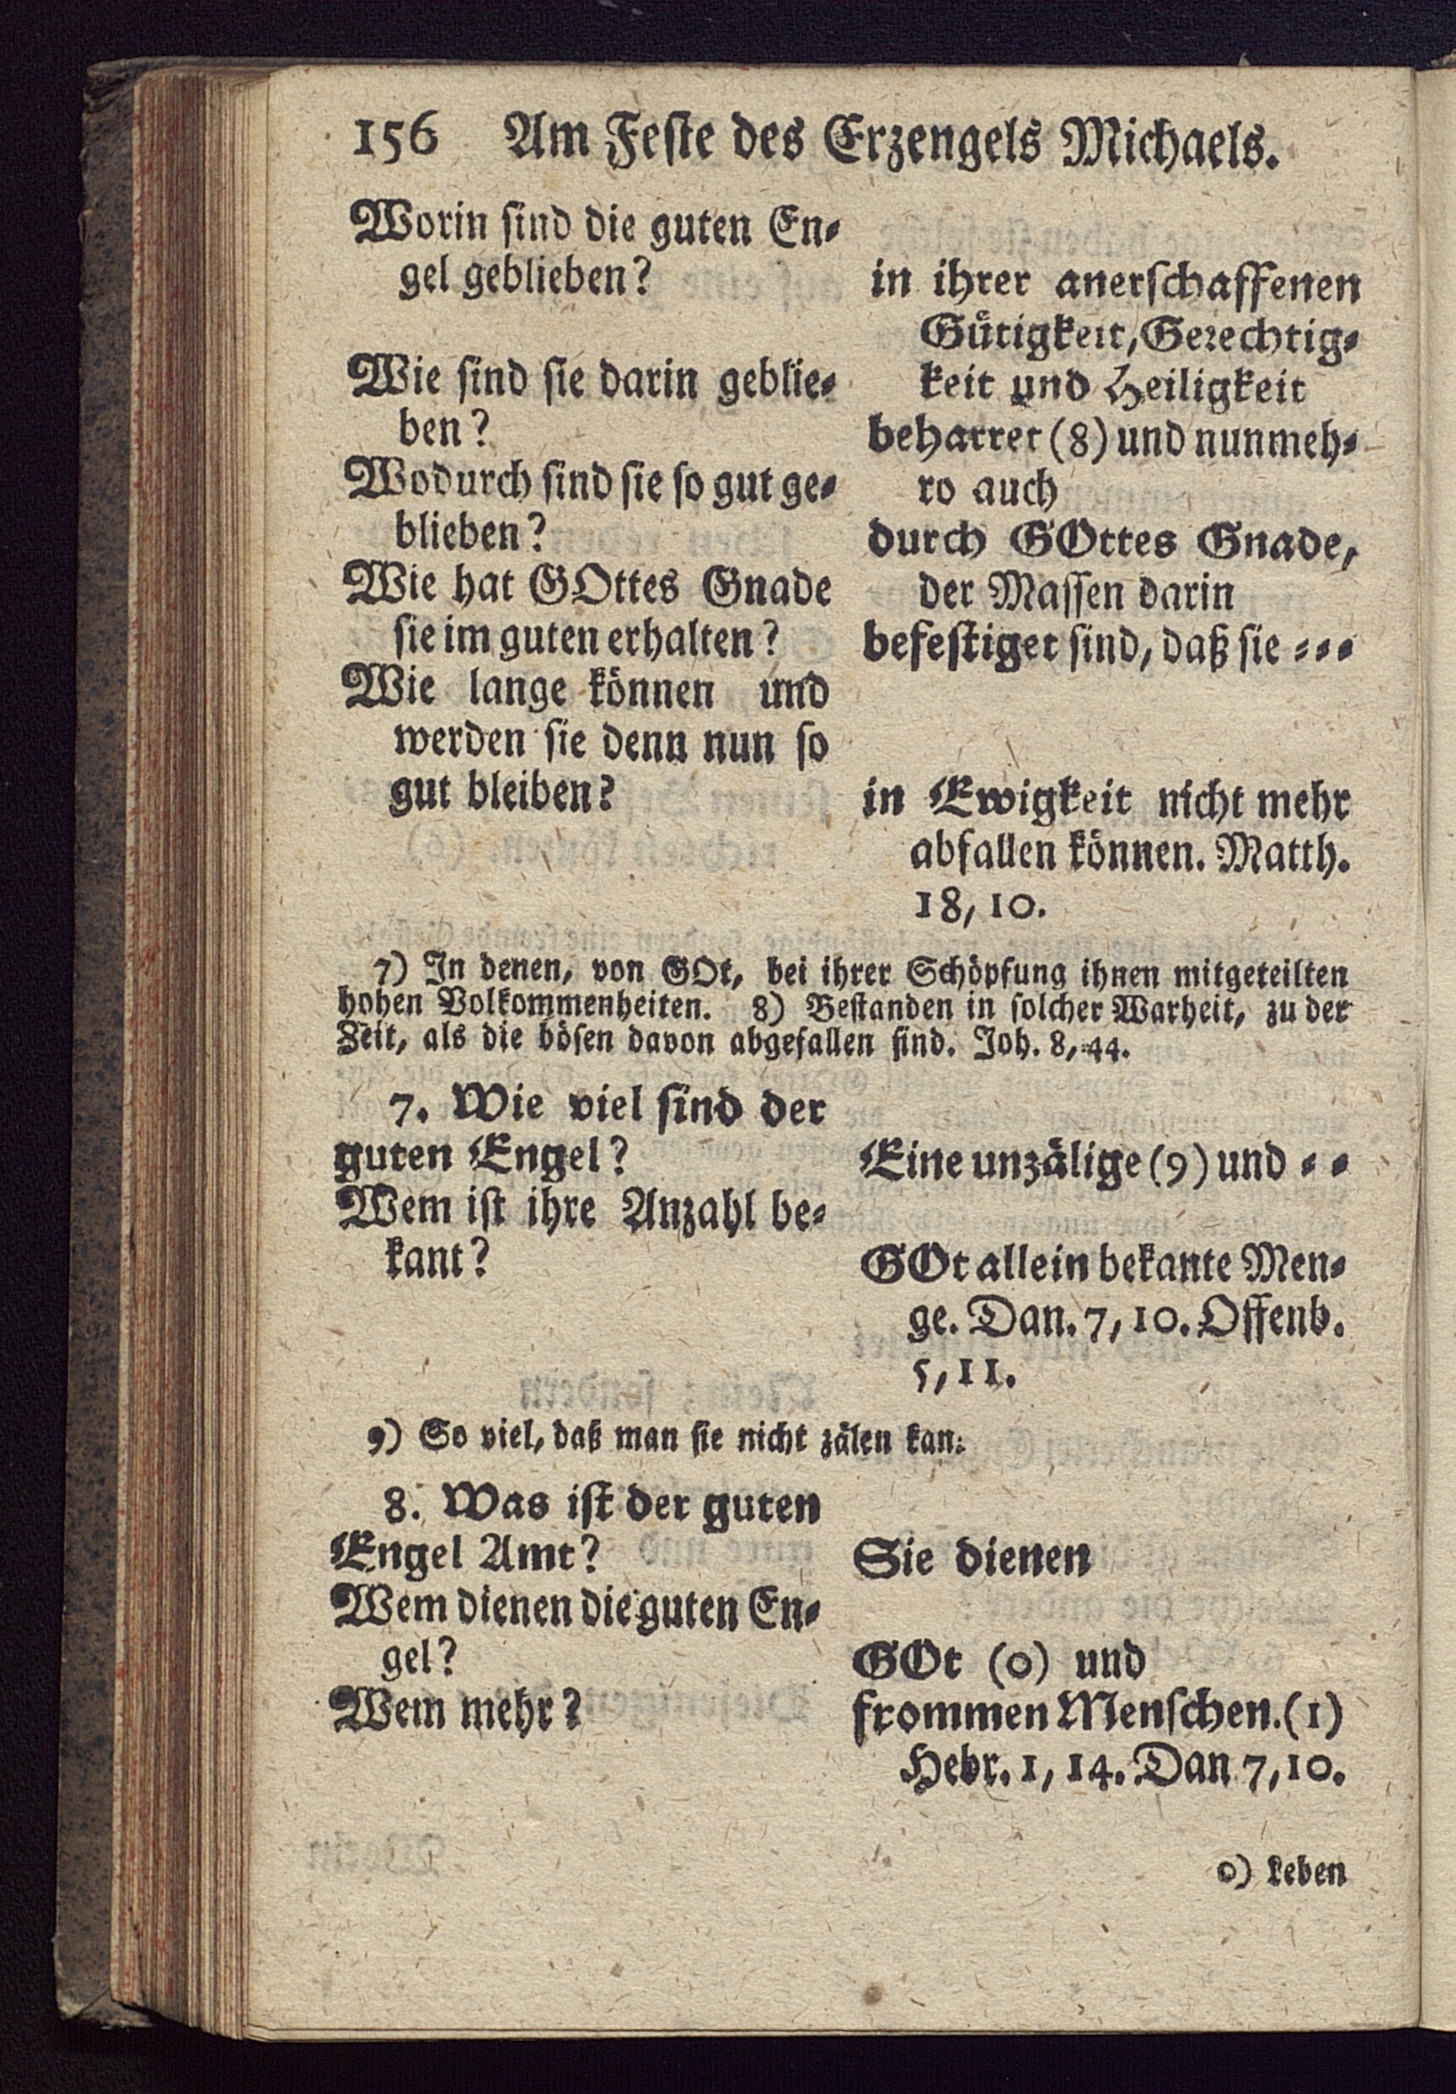 156 Am Feste des Erzengels Michaels.
Worin sind die guten En-
gel geblieben?
in ihrer anerschaffenen
Gütigkeit, Gerechtig-
keit und Heiligkeit
Wie sind sie darin geblie-
ben?
beharret (8) und nunmeh-
ro auch
Wodurch sind sie so gut ge-
blieben?
durch GOttes Gnade,
der Massen darin
Wie hat GOttes Gnade
sie im guten erhalten?
befestiget sind, daß sie - - -
Wie lange können und
werden sie denn nun so
gut bleiben?
in Ewigkeit nicht mehr
abfallen können. Matth.
18, 10.
7) In denen, von GOt, bei ihrer Schöpfung ihnen mitgeteilten
hohen Volkommenheiten. 8) Bestanden in solcher Warheit, zu der
Zeit, als die bösen davon abgefallen sind. Joh. 8, 44.
7. Wie viel sind der
guten Engel?
Eine unzälige (9) und - -
Wem ist ihre Anzahl be-
kant?
GOt allein bekante Men-
ge. Dan. 7, 10. Offenb.
5, 11.
9) So viel, daß man sie nicht zälen kan.
8. Was ist der guten
Engel Amt?
Sie dienen
Wem dienen die guten En-
gel?
GOt (0) und
Wem mehr?
frommen Menschen. (1)
Hebr. 1, 14. Dan 7, 10.
0) Leben